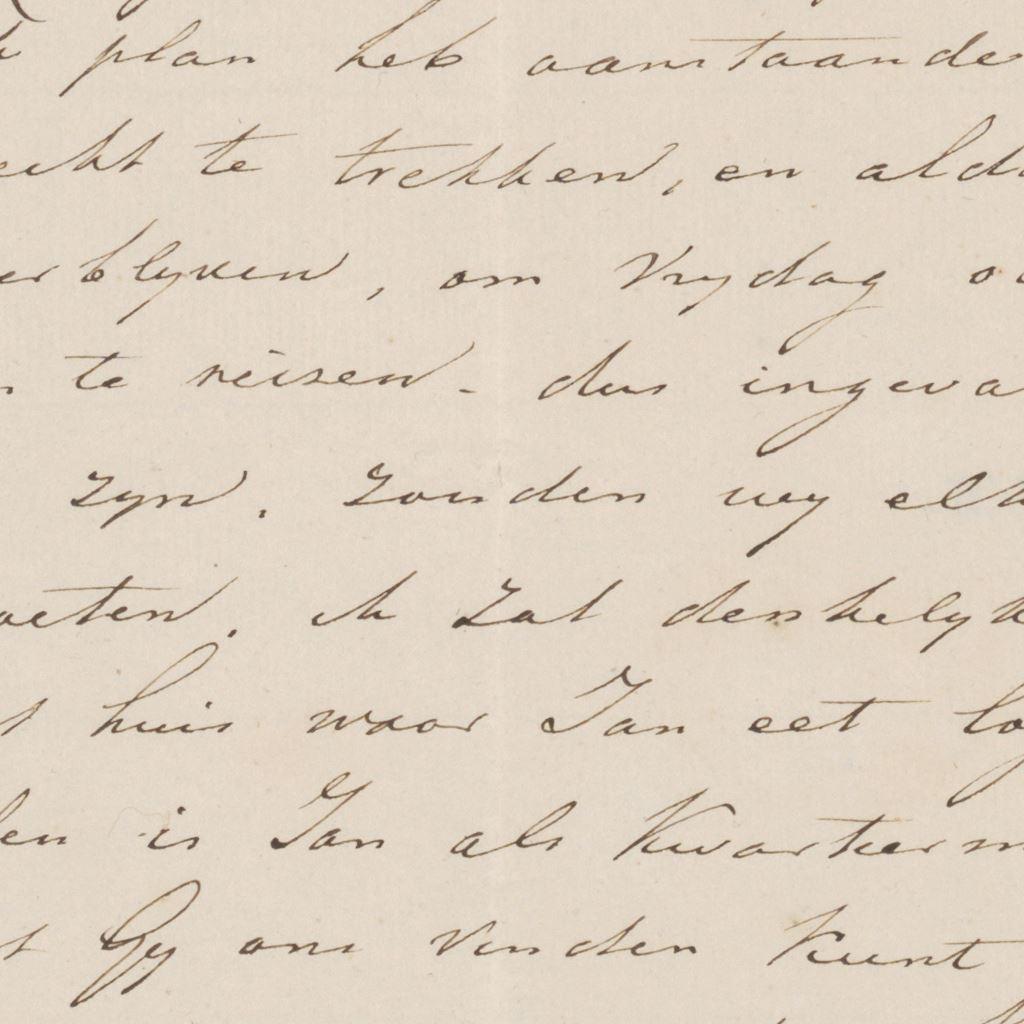 k plan heb aanstaande
echt te trekken, en alda
erblyven, om Vrydag oc
n te reizen - dus ingeva
zyn, zouden wy elk
oeten, ik zal denkelyk
t huis waar Jan eet log
den is Jan als Kwartierm
t Gy ons vinden kunt